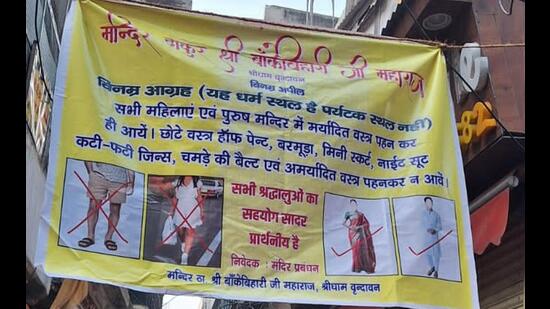 मन्दिर ठाकुर श्री बाँकेबिहारी जी महाराज
श्रीधाम वृन्दावन
विनम्र अपील
विनम्र आग्रह (यह धर्म स्थल है पर्यटक स्थल नहीं)
सभी महिलाएं एवं पुरुष मन्दिर में मर्यादित वस्त्र पहन कर
ही आयें। छोटे वस्त्र हॉफ पेन्ट, बरमूडा, मिनी स्कर्ट, नाईट सूट
कटी-फटी जिन्स, चमड़े की बैल्ट एवं अमर्यादित वस्त्र पहनकर न आवें।
सभी श्रद्धालुओं का
सहयोग सादर
प्रार्थनीय है
निवेदक : मंदिर प्रबंधन
मन्दिर ठा. श्री बाँकेबिहारी जी महाराज, श्रीधाम वृन्दावन